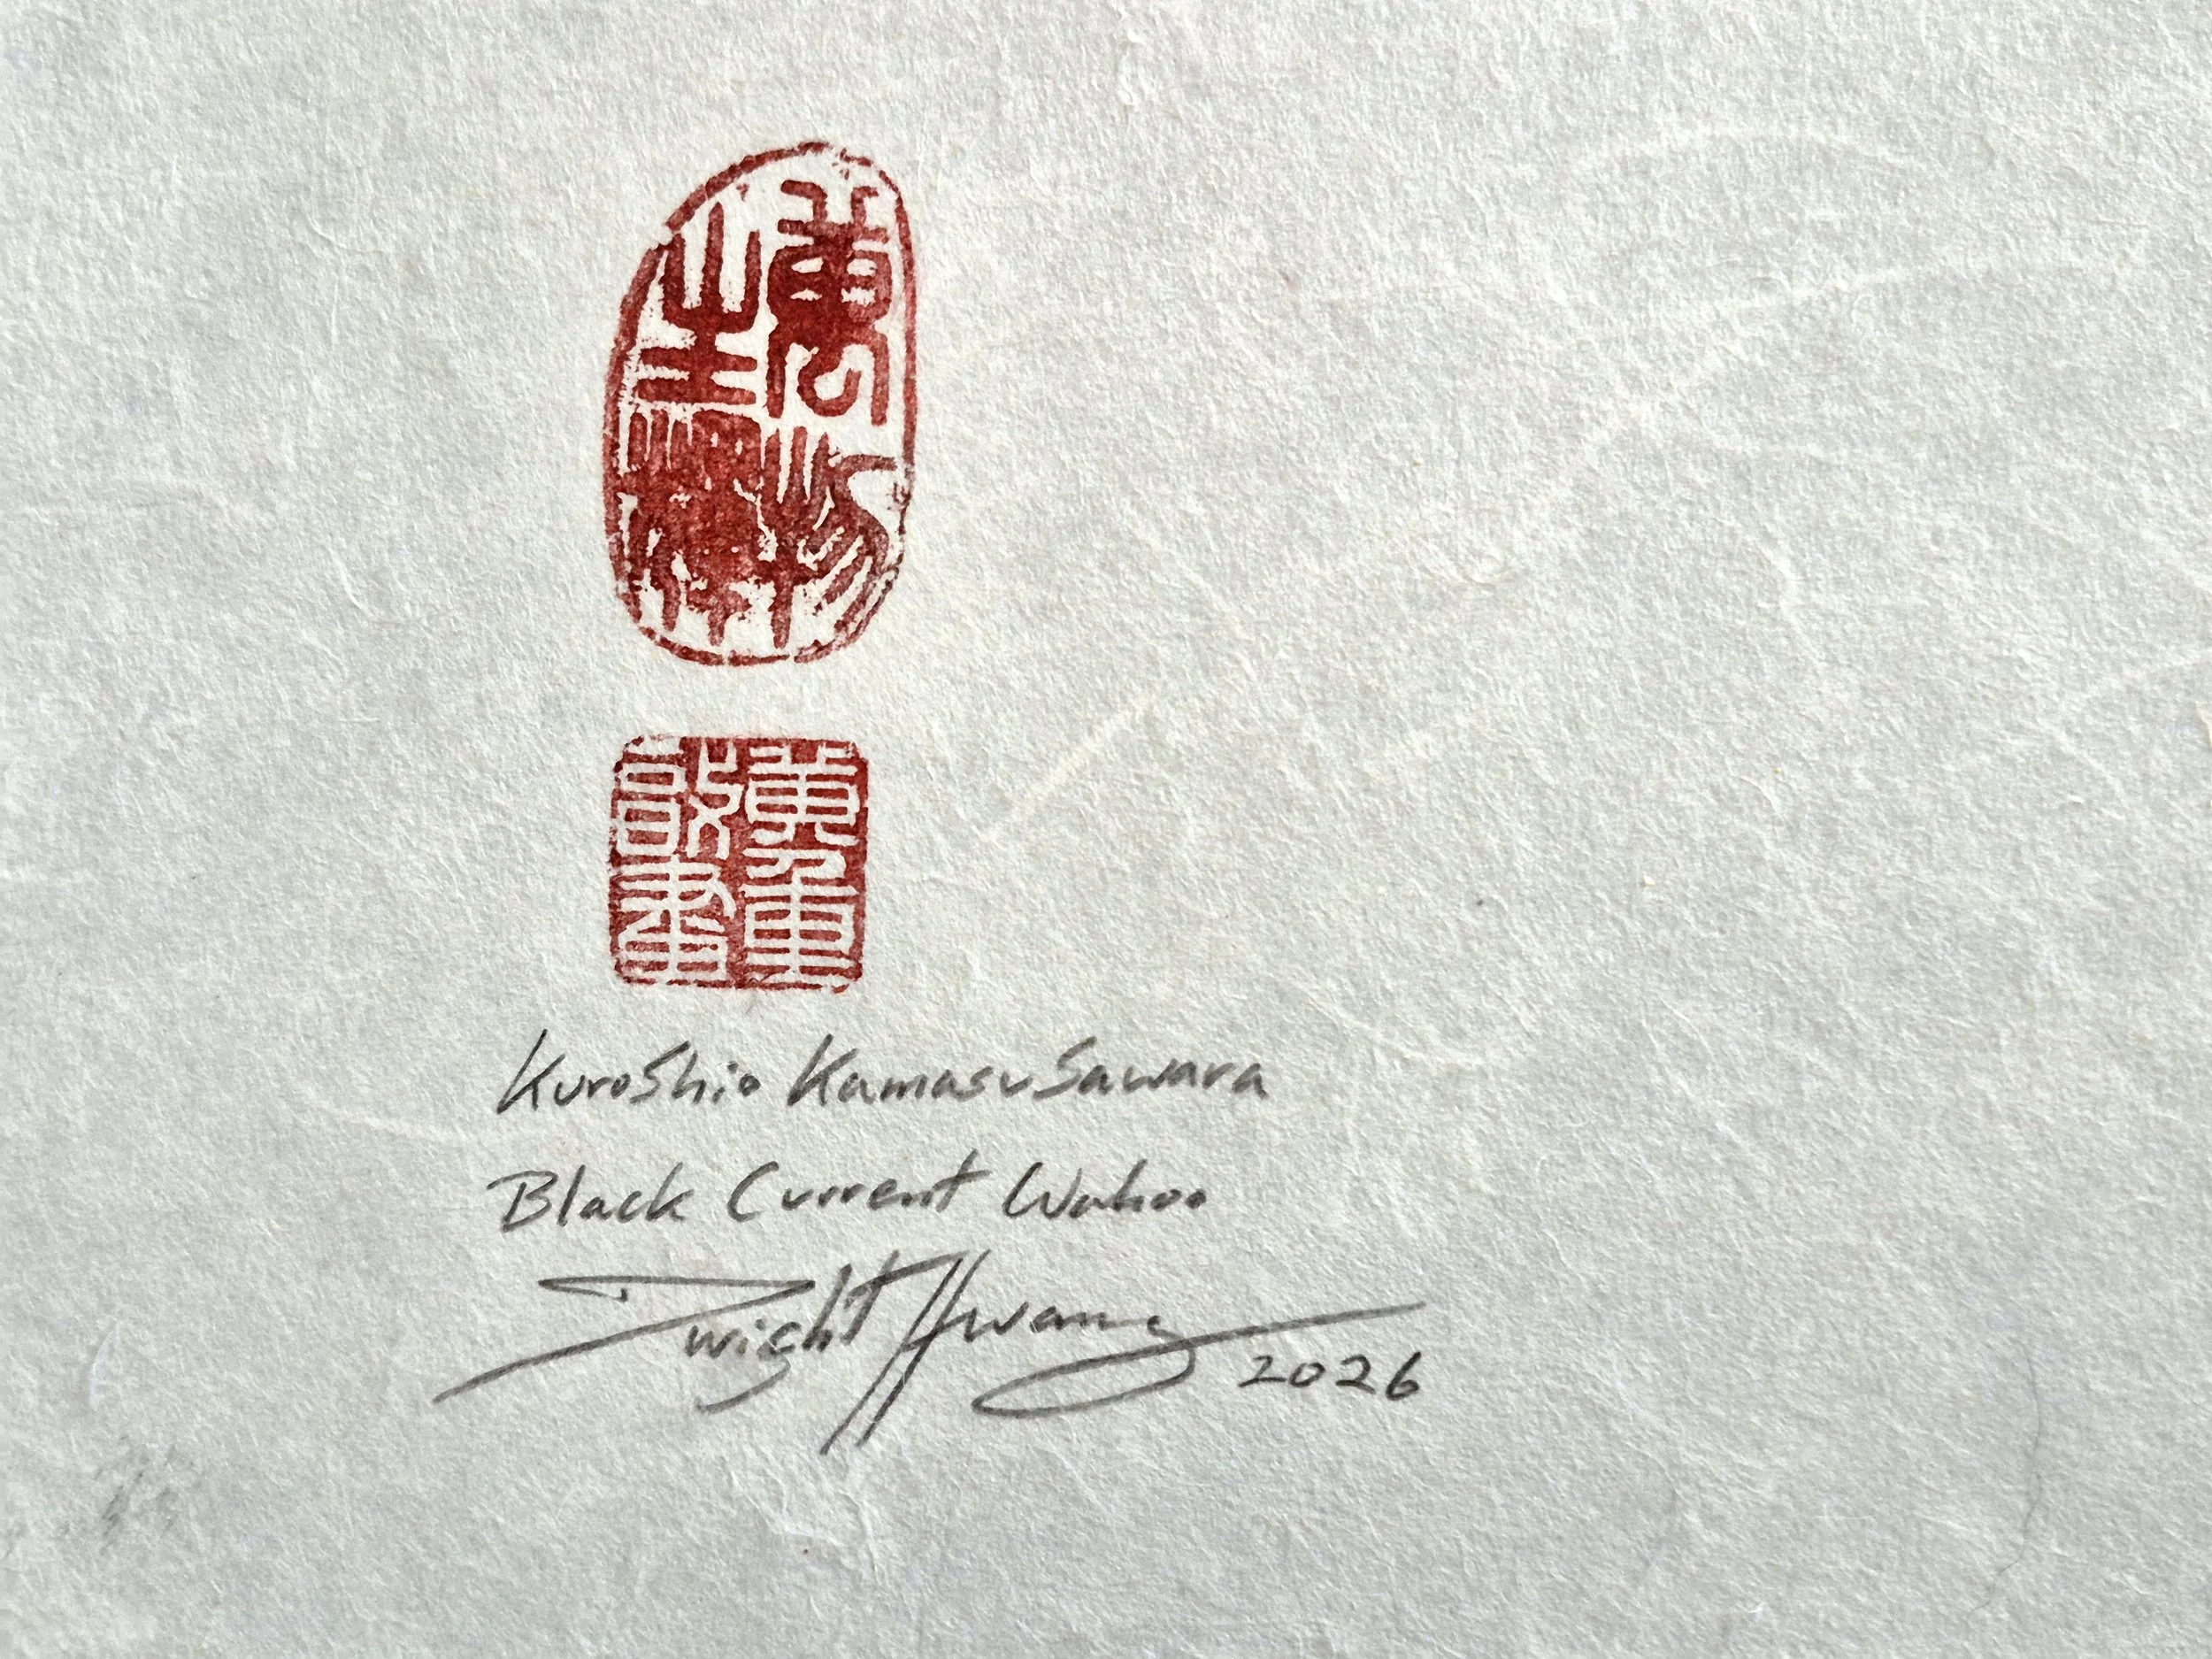 萬物
Kuroshio Kamasu Sawara
Black Current Wahoo
Dwight Hwang 2026